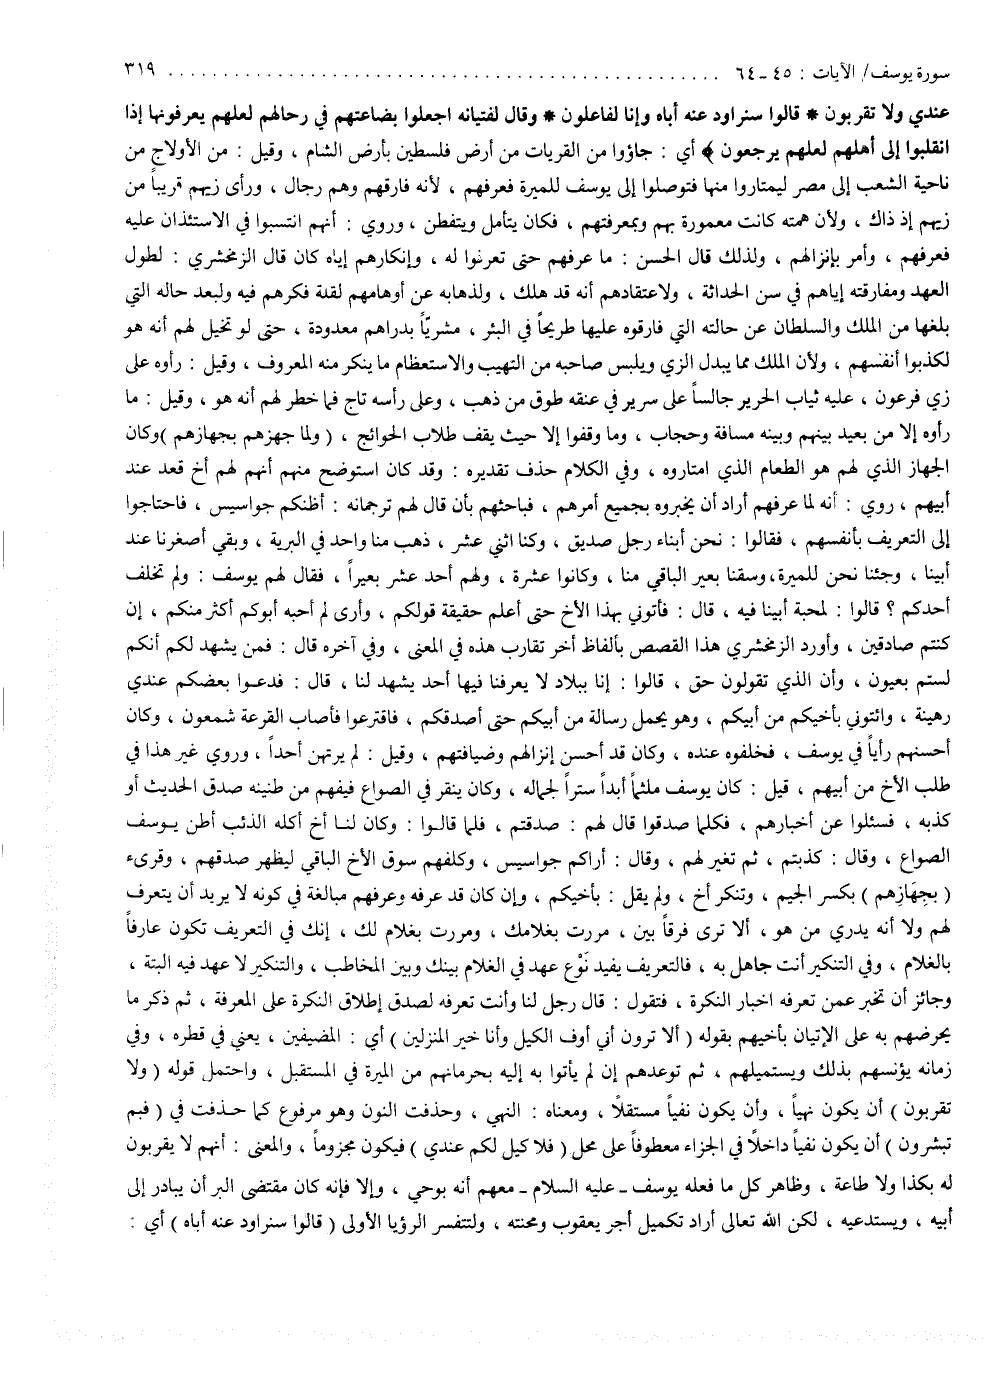 سورة يوسف/ الآيات : ٤٥ ـ ٦٤ ........................................................ ٣١٩
عندي ولا تقربون * قالوا سنراود عنه أباه وإنا لفاعلون * وقال لفتيانه اجعلوا بضاعتهم في رحالهم لعلهم يعرفونها إذا
انقلبوا إلى أهلهم لعلهم يرجعون ﴾ أي : جاؤوا من القريات من أرض فلسطين بأرض الشام ، وقيل : من الأولاج من
ناحية الشعب إلى مصر ليمتاروا منها فتوصلوا إلى يوسف للميرة فعرفهم ، لأنه فارقهم وهم رجال ، ورأى زيهم قريباً من
زيهم إذ ذاك ، ولأن همته كانت معمورة بهم وبمعرفتهم ، فكان يتأمل ويتفطن ، وروي : أنهم انتسبوا في الاستئذان عليه
فعرفهم ، وأمر بإنزالهم ، ولذلك قال الحسن : ما عرفهم حتى تعرنوا له ، وإنكارهم إياه كان قال الزمخشري : لطول
العهد ومفارقته إياهم في سن الحداثة ، ولاعتقادهم أنه قد هلك ، ولذهابه عن أوهامهم لقلة فكرهم فيه ولبعد حاله التي
بلغها من الملك والسلطان عن حالته التي فارقوه عليها طريحاً في البئر ، مشريّاً بدراهم معدودة ، حتى لو تخيل لهم أنه هو
لكذبوا أنفسهم ، ولأن الملك مما يبدل الزي ويلبس صاحبه من التهيب والاستعظام ما ينكر منه المعروف ، وقيل : رأوه على
زي فرعون ، عليه ثياب الحرير جالساً على سرير في عنقه طوق من ذهب ، وعلى رأسه تاج فما خطر لهم أنه هو ، وقيل : ما
رأوه إلا من بعيد بينهم وبينه مسافة وحجاب ، وما وقفوا إلا حيث يقف طلاب الحوائج ، ( ولما جهزهم بجهازهم )وكان
الجهاز الذي لهم هو الطعام الذي امتاروه ، وفي الكلام حذف تقديره : وقد كان استوضح منهم أنهم لهم أخ قعد عند
أبيهم ، روي : أنه لما عرفهم أراد أن يخبروه بجميع أمرهم ، فباحثهم بأن قال لهم ترجمانه : أظنكم جواسيس ، فاحتاجوا
إلى التعريف بأنفسهم ، فقالوا : نحن أبناء رجل صديق ، وكنا اثني عشر ، ذهب منا واحد في البرية ، وبقي أصغرنا عند
أبينا ، وجئنا نحن للميرة، وسقنا بعير الباقي منا ، وكانوا عشرة ، ولهم أحد عشر بعيراً ، فقال لهم يوسف : ولم تخلف
أحدكم ؟ قالوا : لمحبة أبينا فيه ، قال : فأتوني بهذا الأخ حتى أعلم حقيقة قولكم ، وأرى لم أحبه أبوكم أكثر منكم ، إن
كنتم صادقين ، وأورد الزمخشري هذا القصص بألفاظ أخر تقارب هذه في المعنى ، وفي آخره قال : فمن يشهد لكم أنكم
لستم بعيون ، وأن الذي تقولون حق ، قالوا : إنا ببلاد لا يعرفنا فيها أحد يشهد لنا ، قال : فدعـوا بعضكم عندي
رهينة ، وائتوني بأخيكم من أبيكم ، وهو يحمل رسالة من أبيكم حتى أصدقكم ، فاقترعوا فأصاب القرعة شمعون ، وكان
أحسنهم رأياً في يوسف ، فخلفوه عنده ، وكان قد أحسن إنزالهم وضيافتهم ، وقيل : لم يرتهن أحداً ، وروي غير هذا في
طلب الأخ من أبيهم ، قيل : كان يوسف ملثماً أبداً ستراً لجماله ، وكان ينقر في الصواع فيفهم من طنينه صدق الحديث أو
كذبه ، فسئلوا عن أخبارهم ، فكلما صدقوا قال لهم : صدقتم ، فلما قالـوا : وكان لنـا أخ أكله الذئب أطن يـوسف
الصواع ، وقال : كذبتم ، ثم تغير لهم ، وقال : أراكم جواسيس ، وكلفهم سوق الأخ الباقي ليظهر صدقهم ، وقرىء
( بجِهَازِهم ) بكسر الجيم ، وتنكر أخ ، ولم يقل : بأخيكم ، وإن كان قد عرفه وعرفهم مبالغة في كونه لا يريد أن يتعرف
لهم ولا أنه يدري من هو ، ألا ترى فرقاً بين ، مررت بغلامك ، ومررت بغلام لك ، إنك في التعريف تكون عارفاً
بالغلام ، وفي التنكير أنت جاهل به ، فالتعريف يفيد نَوْع عهد في الغلام بينك وبين المخاطب ، والتنكير لا عهد فيه البتة ،
وجائز أن تخبر عمن تعرفه اخبار النكرة ، فتقول : قال رجل لنا وأنت تعرفه لصدق إطلاق النكرة على المعرفة ، ثم ذكر ما
يحرضهم به على الإتيان بأخيهم بقوله ( ألا ترون أني أوف الكيل وأنا خير المنزلين ) أي : المضيفين ، يعني في قطره ، وفي
زمانه يؤنسهم بذلك ويستميلهم ، ثم توعدهم إن لم يأتوا به إليه بحرمانهم من الميرة في المستقبل ، واحتمل قوله ( ولا
تقربون ) أن يكون نهياً ، وأن يكون نفياً مستقلاً ، ومعناه : النهي ، وحذفت النون وهو مرفوع كما حـذفت في ( فبم
تبشرون ) أن يكون نفياً داخلاً في الجزاء معطوفاً على محل ( فلا كيل لكم عندي ) فيكون مجزوماً ، والمعنى : أنهم لا يقربون
له بكذا ولا طاعة ، وظاهر كل ما فعله يوسف ـ عليه السلام ـ معهم أنه بوحي ، وإلا فإنه كان مقتضى البر أن يبادر إلى
أبيه ، ويستدعيه ، لكن الله تعالى أراد تكميل أجر يعقوب ومحنته ، ولتتفسر الرؤيا الأولى ( قالوا سنراود عنه أباه ) أي :